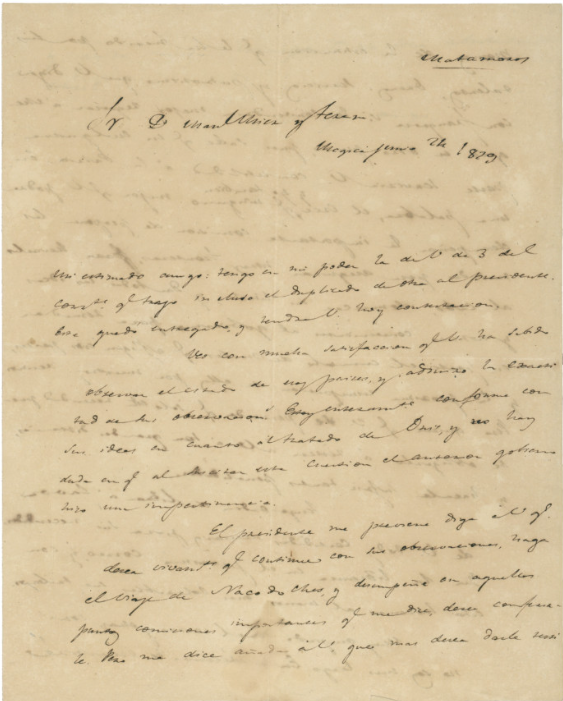 Matamoros
Sr. D. Manl. Mier y Teran
Megico Junio 24 1829
Mi estimado amigo: tengo en mi poder la de V. de 3 del
corrte. qe. trajo incluso el duplicado de otra al presidente.
Ese quedó entregado, y tendrá V. hoy contestacion.
Veo con mucha satisfaccion qe. V. ha sabido
observar el estado de esos paises, y admiro la exacti
tud de sus observacions. Estoy enteramte. conforme con
sus ideas en cuanto al tratado de Onis, y no hay
duda en qe. al tocar esta cuestion el anterior gobierno
hizo una impertinencia.
El presidente me previene diga á V. qe.
desea vivamte. qe. continue con sus observaciones, haga
el viaje de Nacodoches, y desempeñe en aquellos
puntos comisiones importantes qe. me dice, desea
le me dice añada á V. que mas desea darle